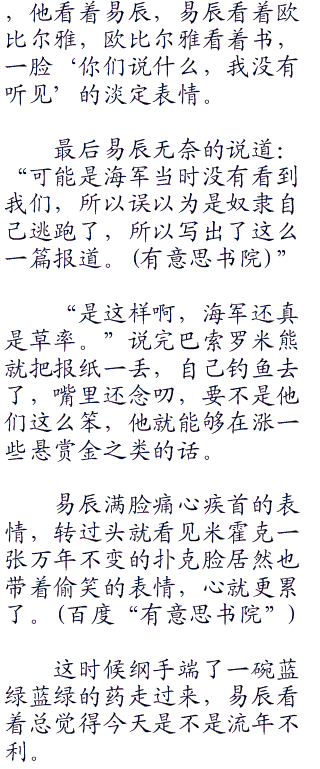 ，他看着易辰，易辰看着欧
比尔雅，欧比尔雅看着书，
一脸‘你们说什么，我没有
听见’的淡定表情。
最后易辰无奈的说道：
“可能是海军当时没有看到
我们，所以误以为是奴隶自
己逃跑了，所以写出了这么
一篇报道。(有意思书院)”
“是这样啊，海军还真
是草率。”说完巴索罗米熊
就把报纸一丢，自己钓鱼去
了，嘴里还念叨，要不是他
们这么笨，他就能够在涨一
些悬赏金之类的话。
易辰满脸痛心疾首的表
情，转过头就看见米霍克一
张万年不变的扑克脸居然也
带着偷笑的表情，心就更累
了。(百度“有意思书院”)
这时候纲手端了一碗蓝
绿蓝绿的药走过来，易辰看
着总觉得今天是不是流年不
利。